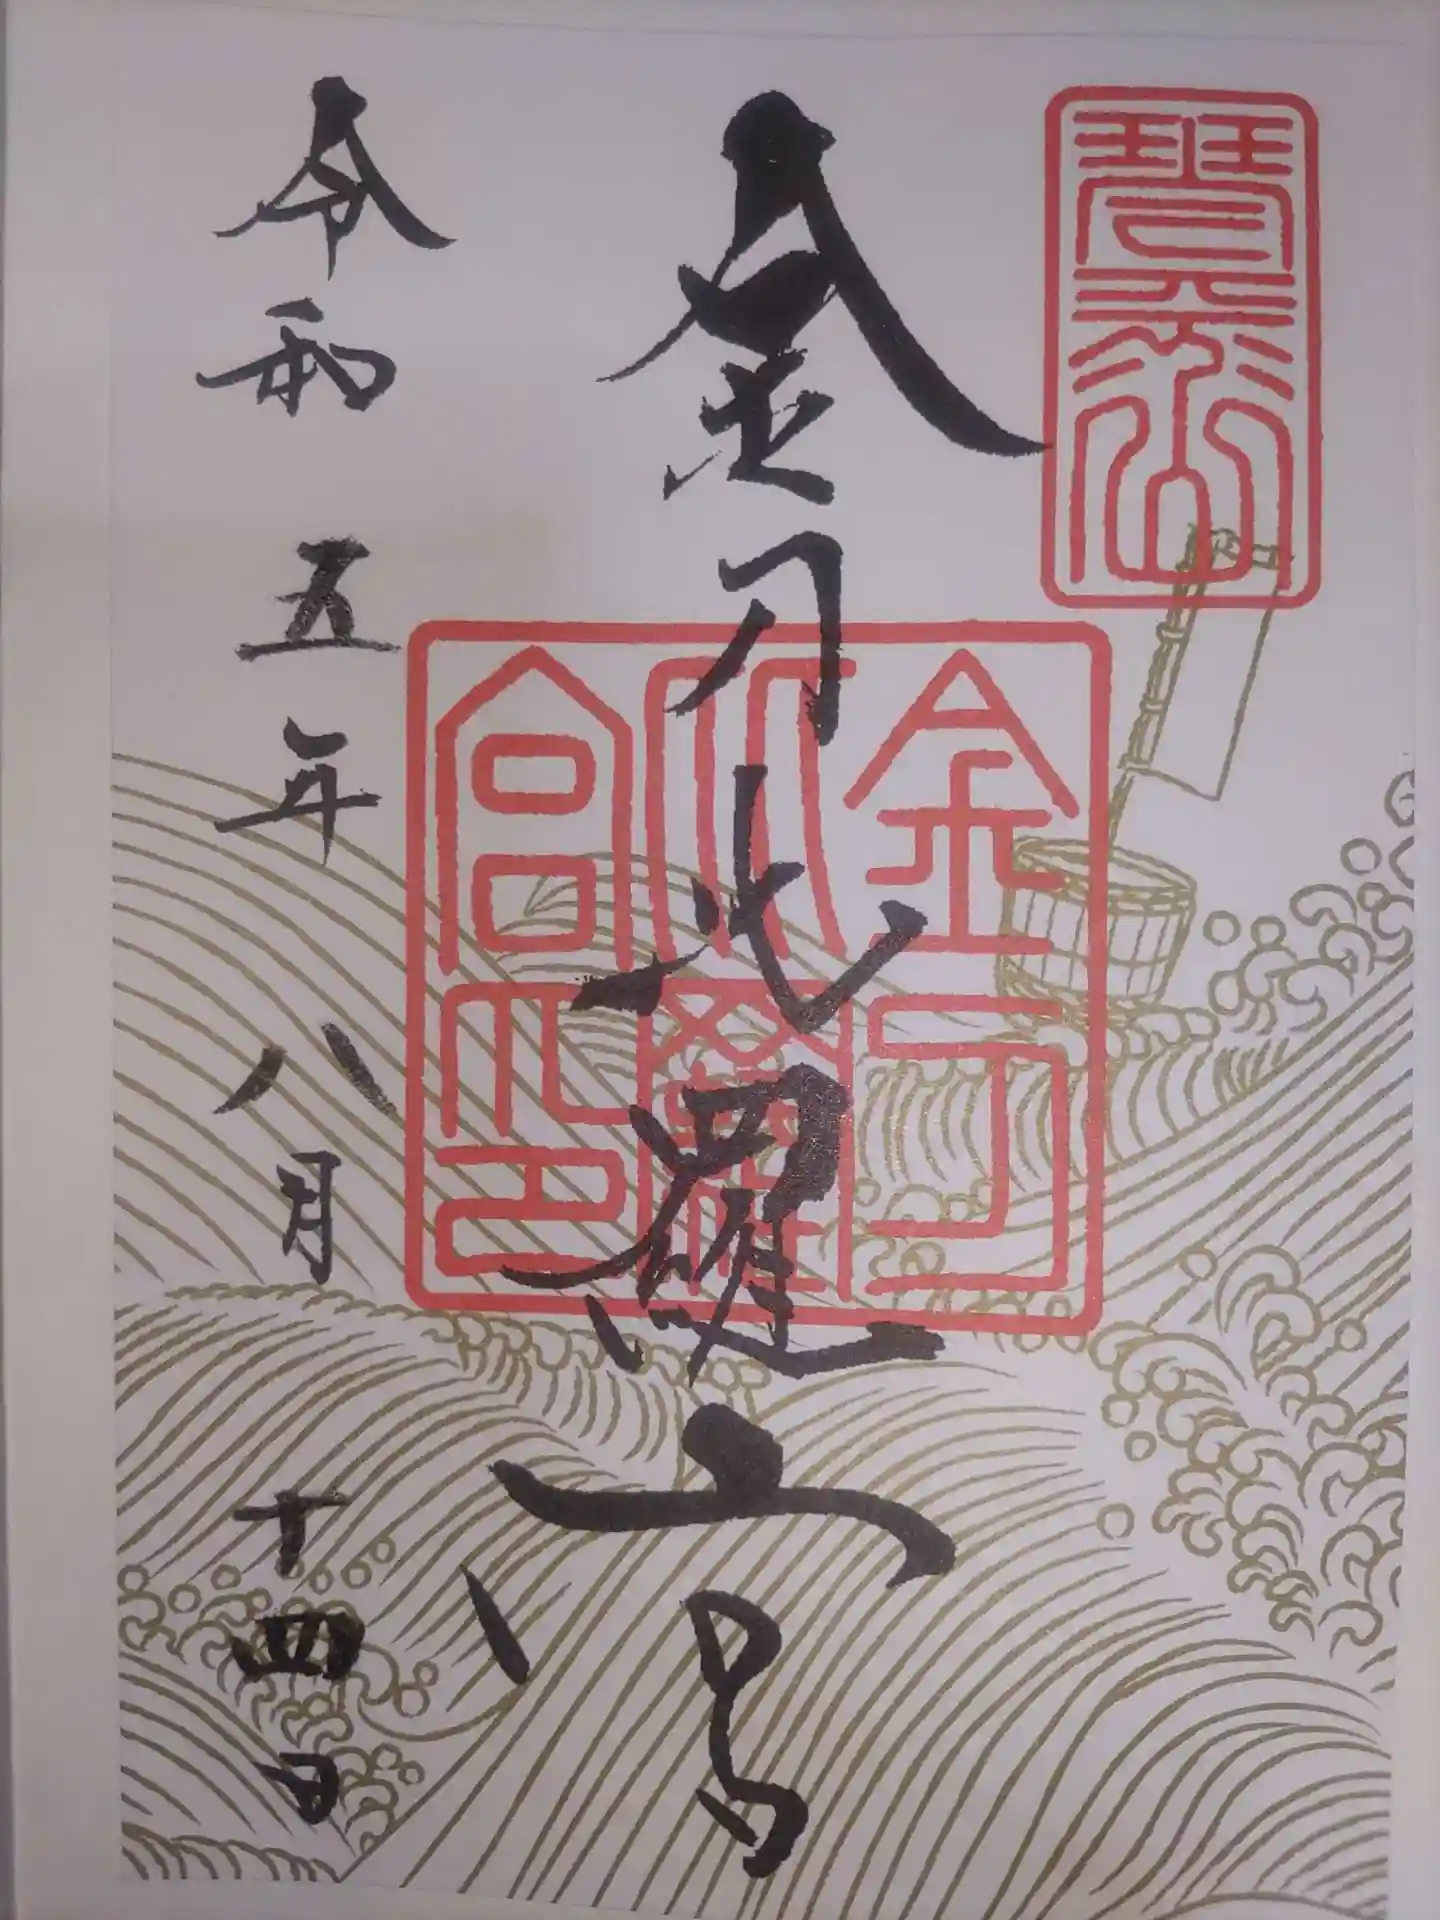 琴平山
金刀比羅宮
金刀比羅宮印
令和五年八月十四日